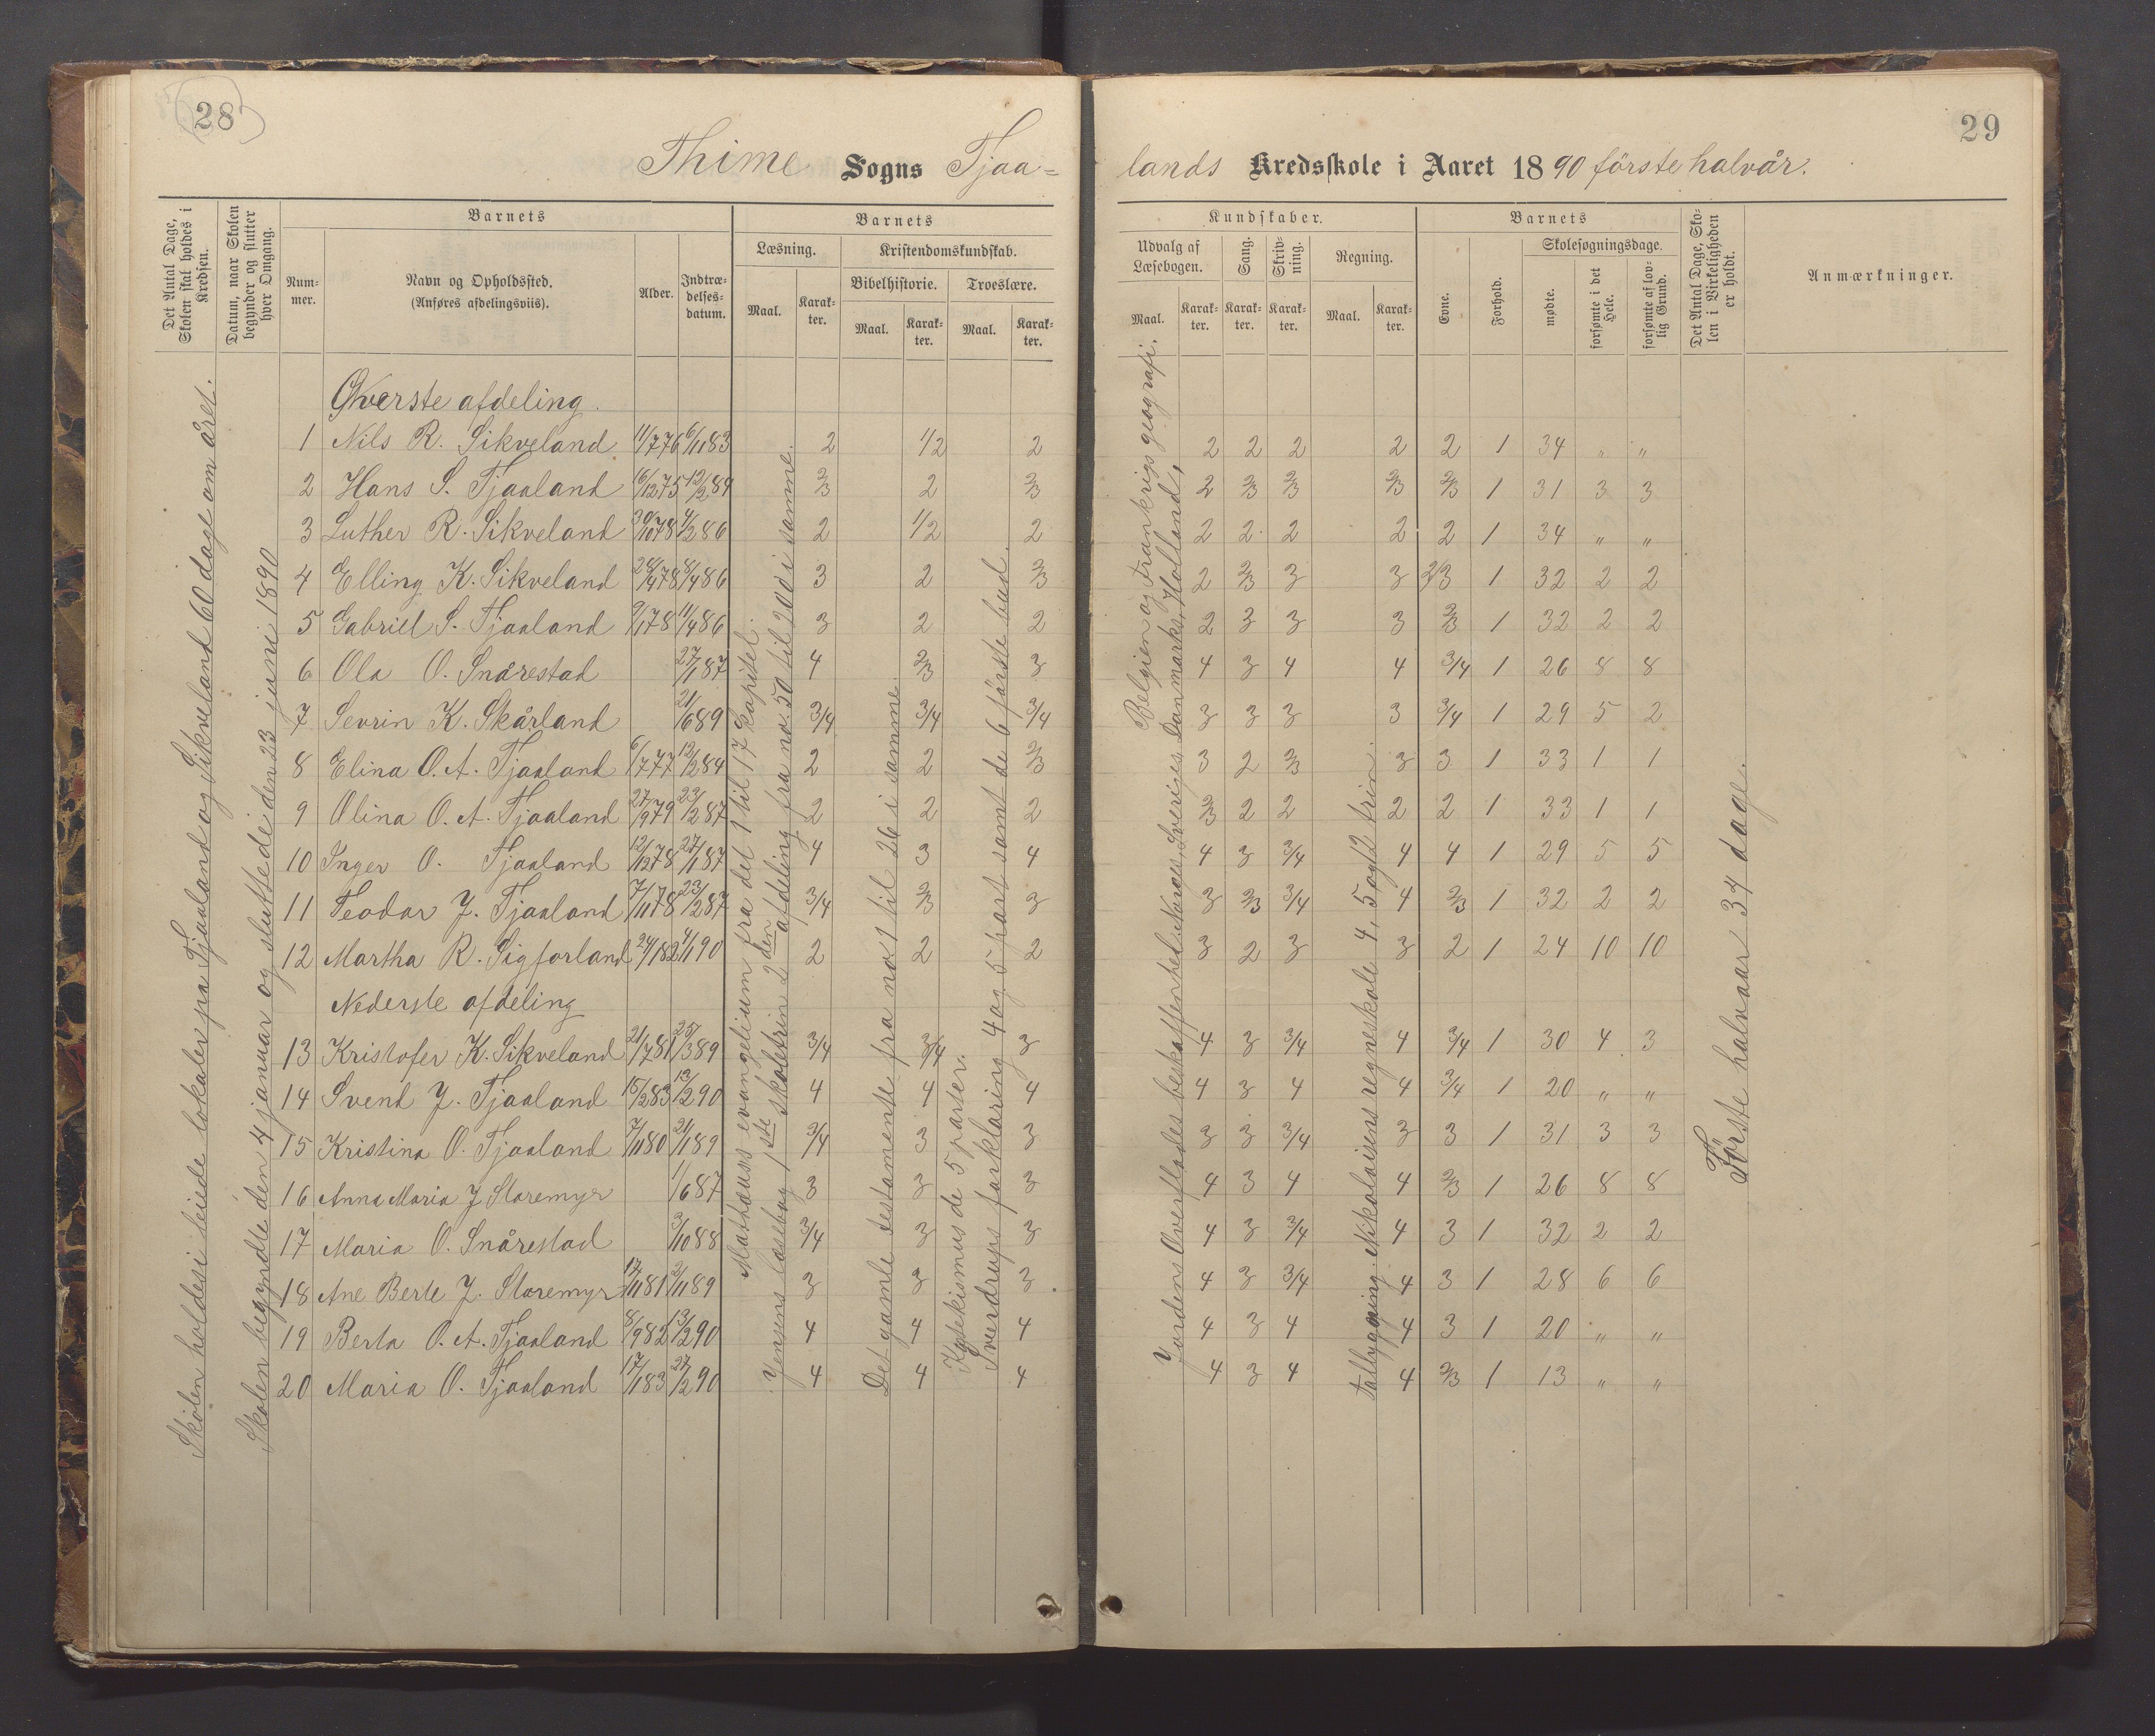 28
Thime Sogns Tjaa=
Det Antal Dage, Skolen skal holdes i Kredsen.
Datum, naar Skolen begynder og slutter hver Omgang.
Barnets
Num-mer.
Navn og Opholdssted.
(Anføres afdelingsviis).
Alder.
Indtræ-delses-datum.
Barnets
Læsning.
Kristendomskundskab.
Bibelhistorie.
Troeslære.
Maal.
Karak-ter.
Maal.
Karak-ter.
Maal.
Karak-ter.
Skolen holdes i leiede lokaler på Tjaaland og Sikveland 60 dage om året.
Skolen begyndte den 4 januar og sluttede den 23 juni 1890
Mathæus evangelium fra det 1 til 17 kapitel.
Jensens læsebog 1ste skoletrin 2den afdeling fra no. 50 til 200 i samme.
Det gamle testamente fra no 1 til 26 i samme.
Katekismus de 5 parter.
Sverdrups forklaring 4 og 5 part samt de 6 første bud.
Øverste afdeling.
1 Nils R. Sikveland 11/7 76 6/11 83 2 1/2 2
2 Hans S. Tjaaland 16/12 75 12/2 84 2/3 2 2/3
3 Luther R. Sikveland 30/10 78 4/2 86 2 1/2 2
4 Elling K. Sikveland 28/4 78 8/4 86 3 2 2/3
5 Gabriel S. Tjaaland 9/1 78 11/4 86 3 2 2
6 Ola O. Snårestad 27/1 87 4 2/3 3
7 Sevrin K. Skårland 21/6 89 3/4 3/4 3/4
8 Elina O. A. Tjaaland 6/7 77 12/2 84 2 2 2/3
9 Olina O. A. Tjaaland 27/9 79 23/2 87 2 2 2
10 Inger O. Tjaaland 12/12 78 27/1 87 4 3 4
11 Teodor J. Tjaaland 7/11 78 23/2 87 3/4 2/3 3
12 Martha R. Sigforland 24/1 82 4/1 90 2 2 2
Nederste afdeling
13 Kristofer K. Sikveland 21/7 81 25/3 89 3/4 3/4 3
14 Svend J. Tjaaland 15/2 83 13/2 90 4 4 4
15 Kristina O. Tjaaland 7/11 80 21/1 89 3/4 3 3
16 Anna Maria J Storemyr 1/6 87 3 3 3
17 Maria O. Snårestad 3/10 88 3/4 3 3
18 Ane Berte J. Storemyr 17/11 81 2/11 89 3 3 3
19 Berta O. A. Tjaaland 8/9 82 13/2 90 4 4 4
20 Maria O. Tjaaland 17/1 83 27/2 90 4 4 4
29
lands Kredsskole i Aaret 1890 förste halvår.
Kundskaber.
Udvalg af Læsebogen.
Sang.
Skriv-ning.
Regning.
Maal.
Karak-ter.
Karak-ter.
Karak-ter.
Maal.
Karak-ter.
Barnets
Evne.
Forhold.
Skolesøgningsdage.
mødte.
forsømte i det Hele.
forsømte af lov-lig Grund.
Det Antal Dage, Sko-len i Virkeligheden er holdt.
Anmærkninger.
Jordens Overflades beskaffenhed. Norges, Sveriges, Danmarks, Hollands,
Belgien og Frankrigs geografi.
talbygging. Nikolaisens regneskole 4, 5 og 12 trin.
Förste halvaar 34 dage.
2 2 2 2 2 1 34 „ „
2 2/3 2/3 2/3 2/3 1 31 3 3
2 2 2 2 2 1 34 „ „
2 2/3 3 3 2/3 1 32 2 2
2 3 3 3 2/3 1 32 2 2
4 3 4 4 3/4 1 26 8 8
3 3 3 3 3/4 1 29 5 2
3 2 2/3 3 3 1 33 1 1
2/3 2 2 2 2 1 33 1 1
4 3 3/4 4 4 1 29 5 5
3 2/3 3/4 4 2/3 1 32 2 2
3 2 3 3 2 1 24 10 10
4 3 3/4 4 3/4 1 30 4 3
4 3 4 4 3/4 1 20 „ „
3 3 3/4 3 3 1 31 3 3
4 3 4 4 2/3 1 26 8 8
4 3 3/4 4 3 1 32 2 2
4 3 3/4 4 3 1 28 6 6
4 3 4 4 3 1 20 „ „
4 3 4 4 2/3 1 13 „ „